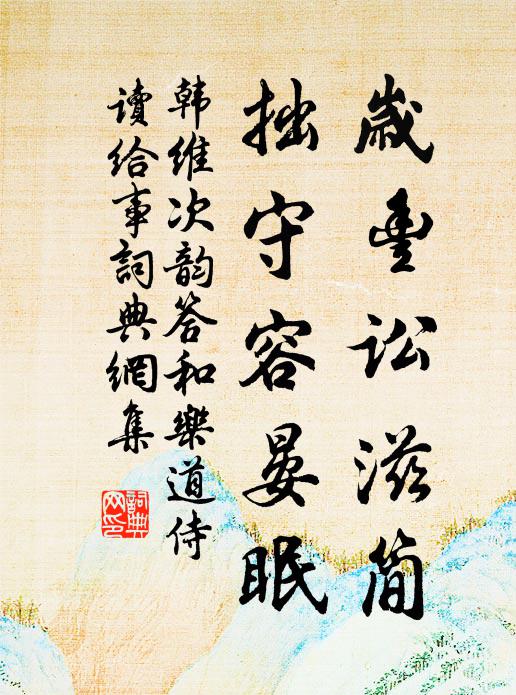 歲豐訟滋簡
拙守容晏眠
韩維次韵答和樂道侍
讀给事詞典網集
詞典
网印